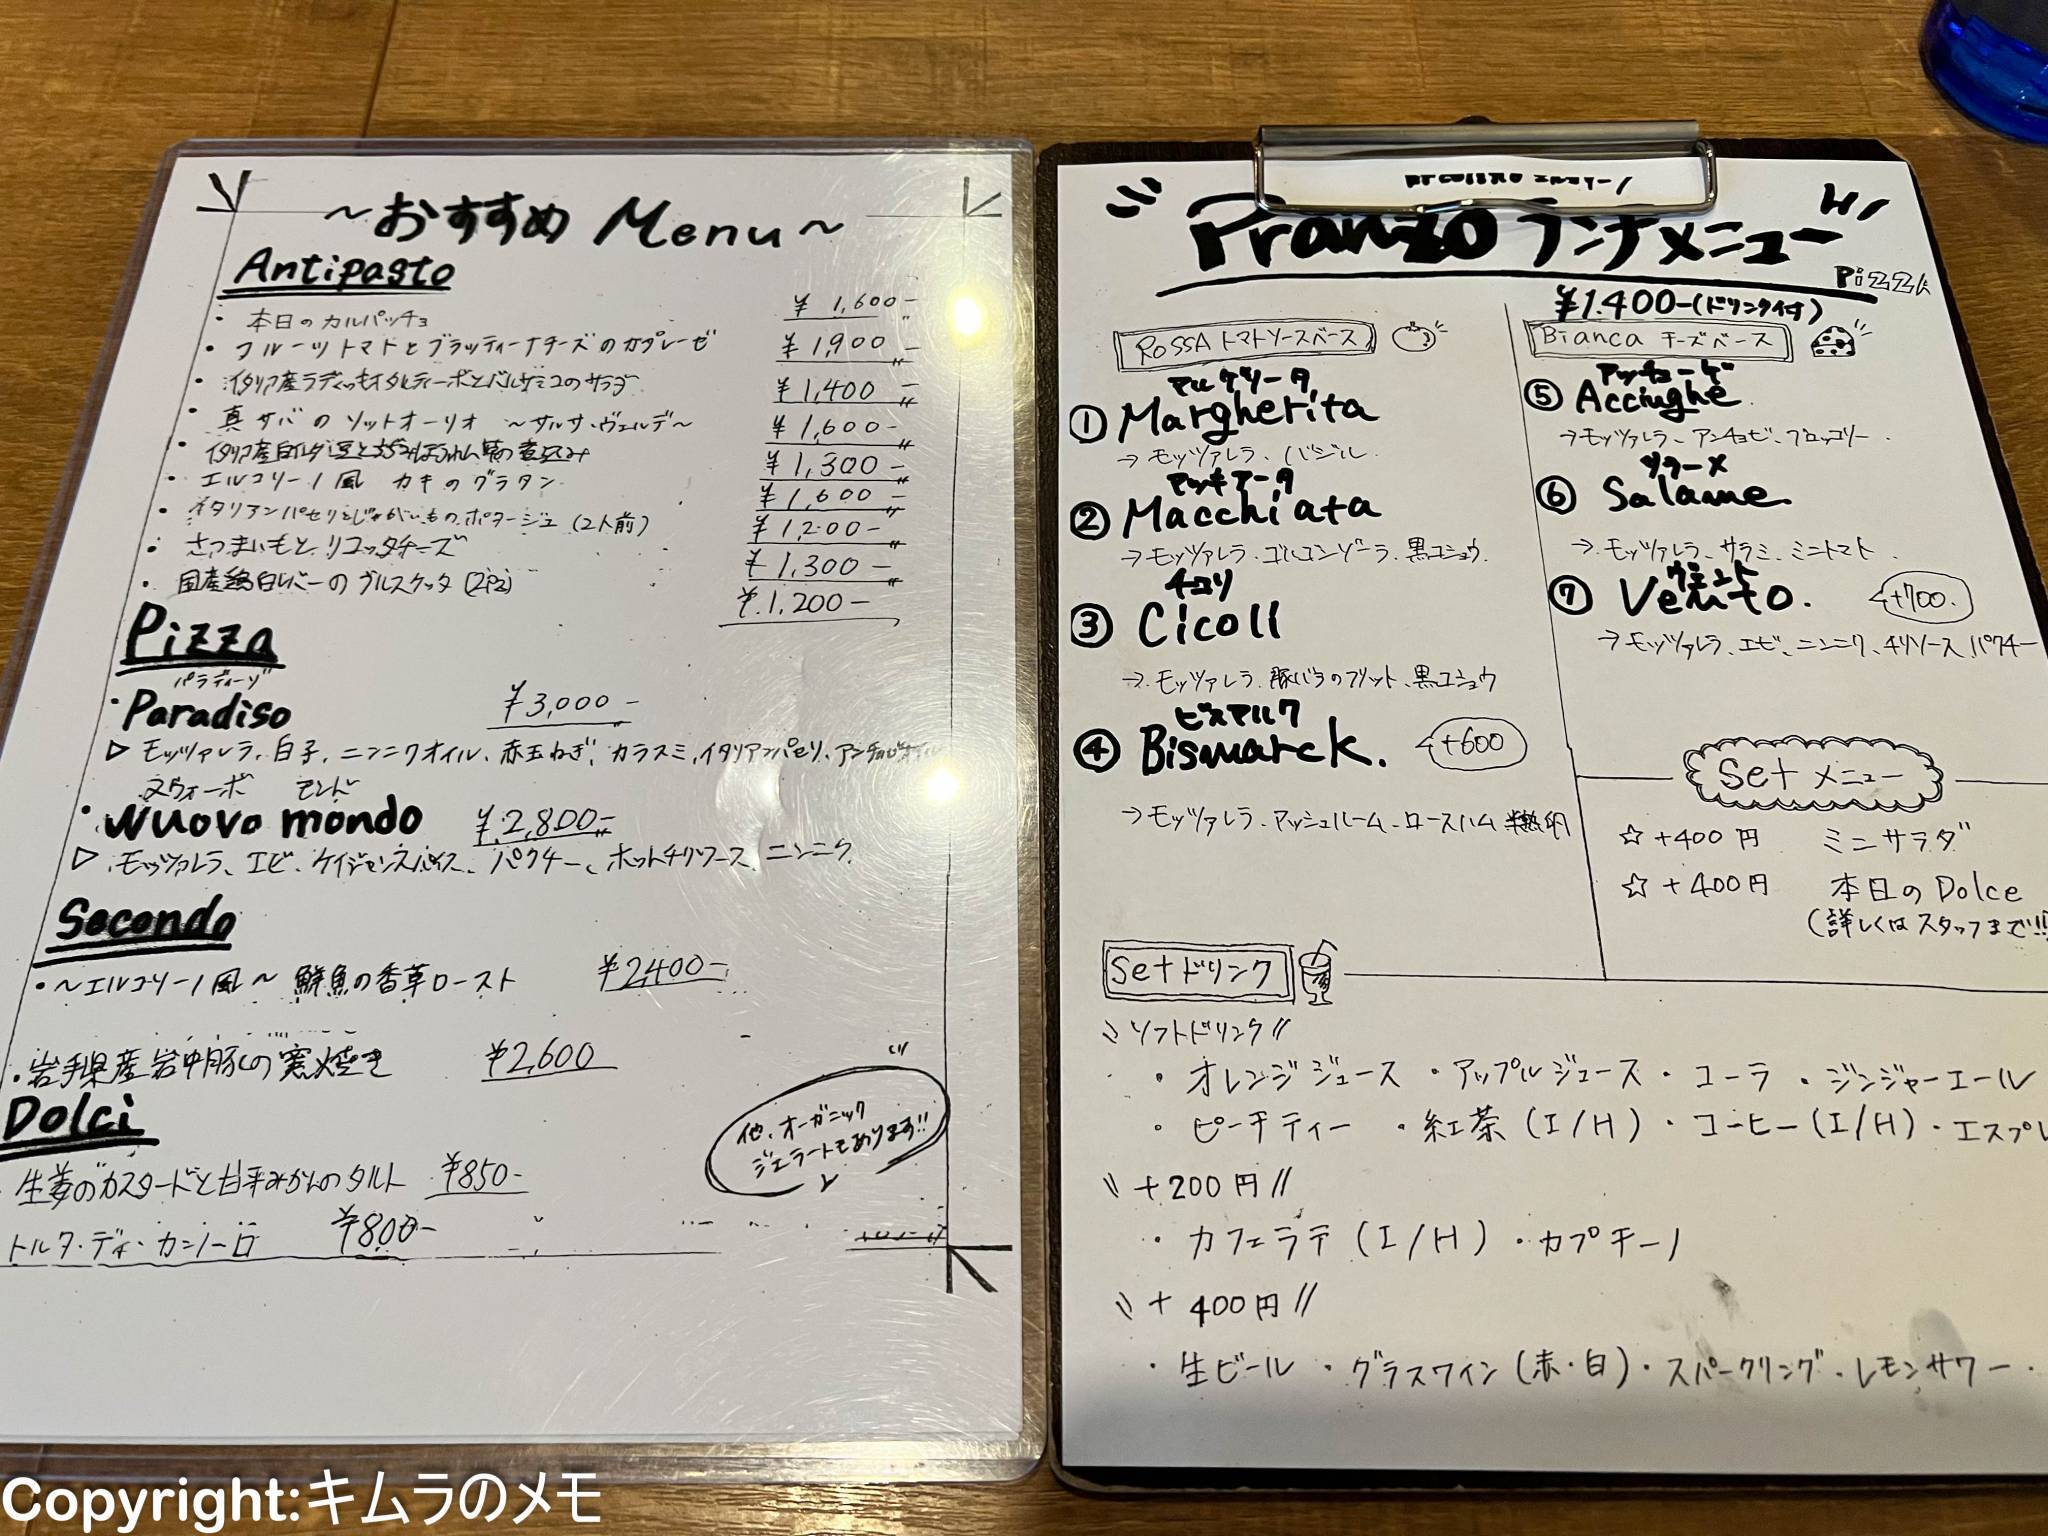 ～おすすめ Menu～
Antipasto
・本日のカルパッチョ ¥1,600-
・フルーツトマトとブラッティーナチーズのカプレーゼ ¥1,900-
・イタリア産ラディッキオタルティーボとバルサミコのサラダ ¥1,400-
・真サバのソットオーリオ ～サルサ・ヴェルデ～ ¥1,600-
・イタリア産白いんげん豆と ¥1,300-
・エルコリーノ風 カキのグラタン ¥1,600-
・イタリアンパセリとじゃがいものポタージュ (2人前) ¥1,200-
・さつまいもとリコッタチーズ ¥1,300-
・国産鶏白レバーのブルスケッタ (2pz) ¥1,200-
Pizza
パラディーゾ
・Paradiso ¥3,000-
▷ モッツァレラ、白子、ニンニクオイル、赤玉ねぎ、カラスミ、イタリアンパセリ、アンチョビオイル
ヌウォーボ モンド
・Nuovo mondo ¥2,800-
▷ モッツァレラ、エビ、ケイジャンスパイス、パクチー、ホットチリソース、ニンニク
Secondo
・～エルコリーノ風～ 鮮魚の香草ロースト ¥2400-
・岩手県産岩中豚の窯焼き ¥2,600
Dolci
・生姜のカスタードと甘平みかんのタルト ¥850-
トルタ・ディ・カンノーロ ¥800-
他、オーガニック
ジェラートもあります!!
Pranzo ランチメニュー
Pizza
¥1.400-(ドリンク付)
ROSSA トマトソースベース
マルゲリータ
① Margherita
→モッツァレラ、バジル
マッキアータ
② Macchiata
→モッツァレラ、ゴルゴンゾーラ、黒コショウ
チコリ
③ Cicoli
→モッツァレラ、豚バラのフリット、黒コショウ
ビスマルク
④ Bismarck. +600
→モッツァレラ、マッシュルーム、ロースハム 半熟卵
Bianca チーズベース
アッチューゲ
⑤ Acciughe
→モッツァレラ、アンチョビ、ブロッコリー
サラーメ
⑥ Salame
→モッツァレラ、サラミ、ミニトマト
ヴェント
⑦ Vento. +700.
→モッツァレラ、エビ、ニンニク、チリソース、パクチー
Set メニュー
☆ +400円 ミニサラダ
☆ +400円 本日のDolce
(詳しくはスタッフまで!!
Set ドリンク
\\ ソフトドリンク //
・オレンジジュース ・アップルジュース ・コーラ ・ジンジャーエール
・ピーチティー ・紅茶 (I/H) ・コーヒー (I/H) ・エスプレ
\\ +200円 //
・カフェラテ (I/H) ・カプチーノ
\\ +400円 //
・生ビール ・グラスワイン (赤・白) ・スパークリング ・レモンサワー ・
Copyright:キムラのメモ